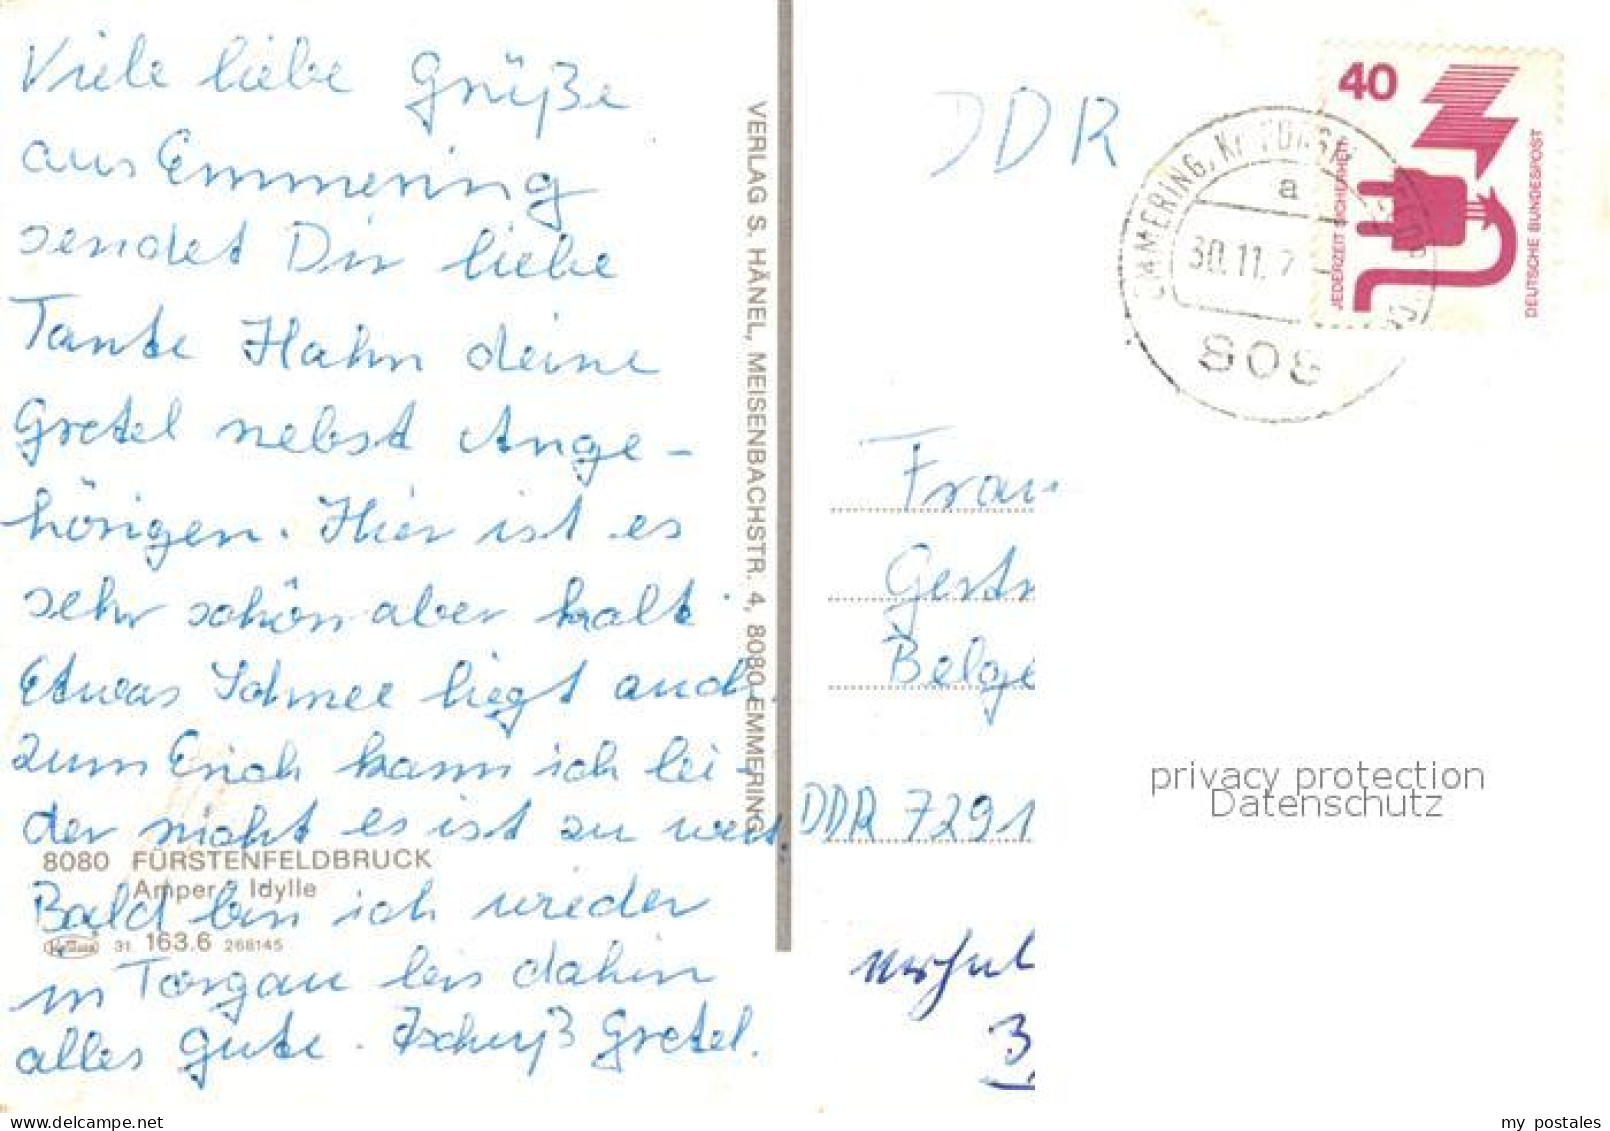 Viele liebe Grüße
aus Emmering
sendet Dir liebe
Tante Hahn deine
Gretel nebst Ange-
hörigen. Hier ist es
sehr schön aber kalt.
Etwas Schnee liegt auch
zum Erich kann ich lei-
der nicht es ist zu weit
8080 FÜRSTENFELDBRUCK
Amper - Idylle
Bald bin ich wieder
31 163.6 268145
in Torgau bis dahin
alles Gute. Tschüß Gretel.
VERLAG S. HÄNEL, MEISENBACHSTR. 4, 8080 EMMERING
DDR
40
JEDERZEIT SICHERHEIT
DEUTSCHE BUNDESPOST
EMMERING, Kr
a
30.11.7
808
Frau
Gertr
Belge
DDR 7291
privacy protection
Datenschutz
my postales